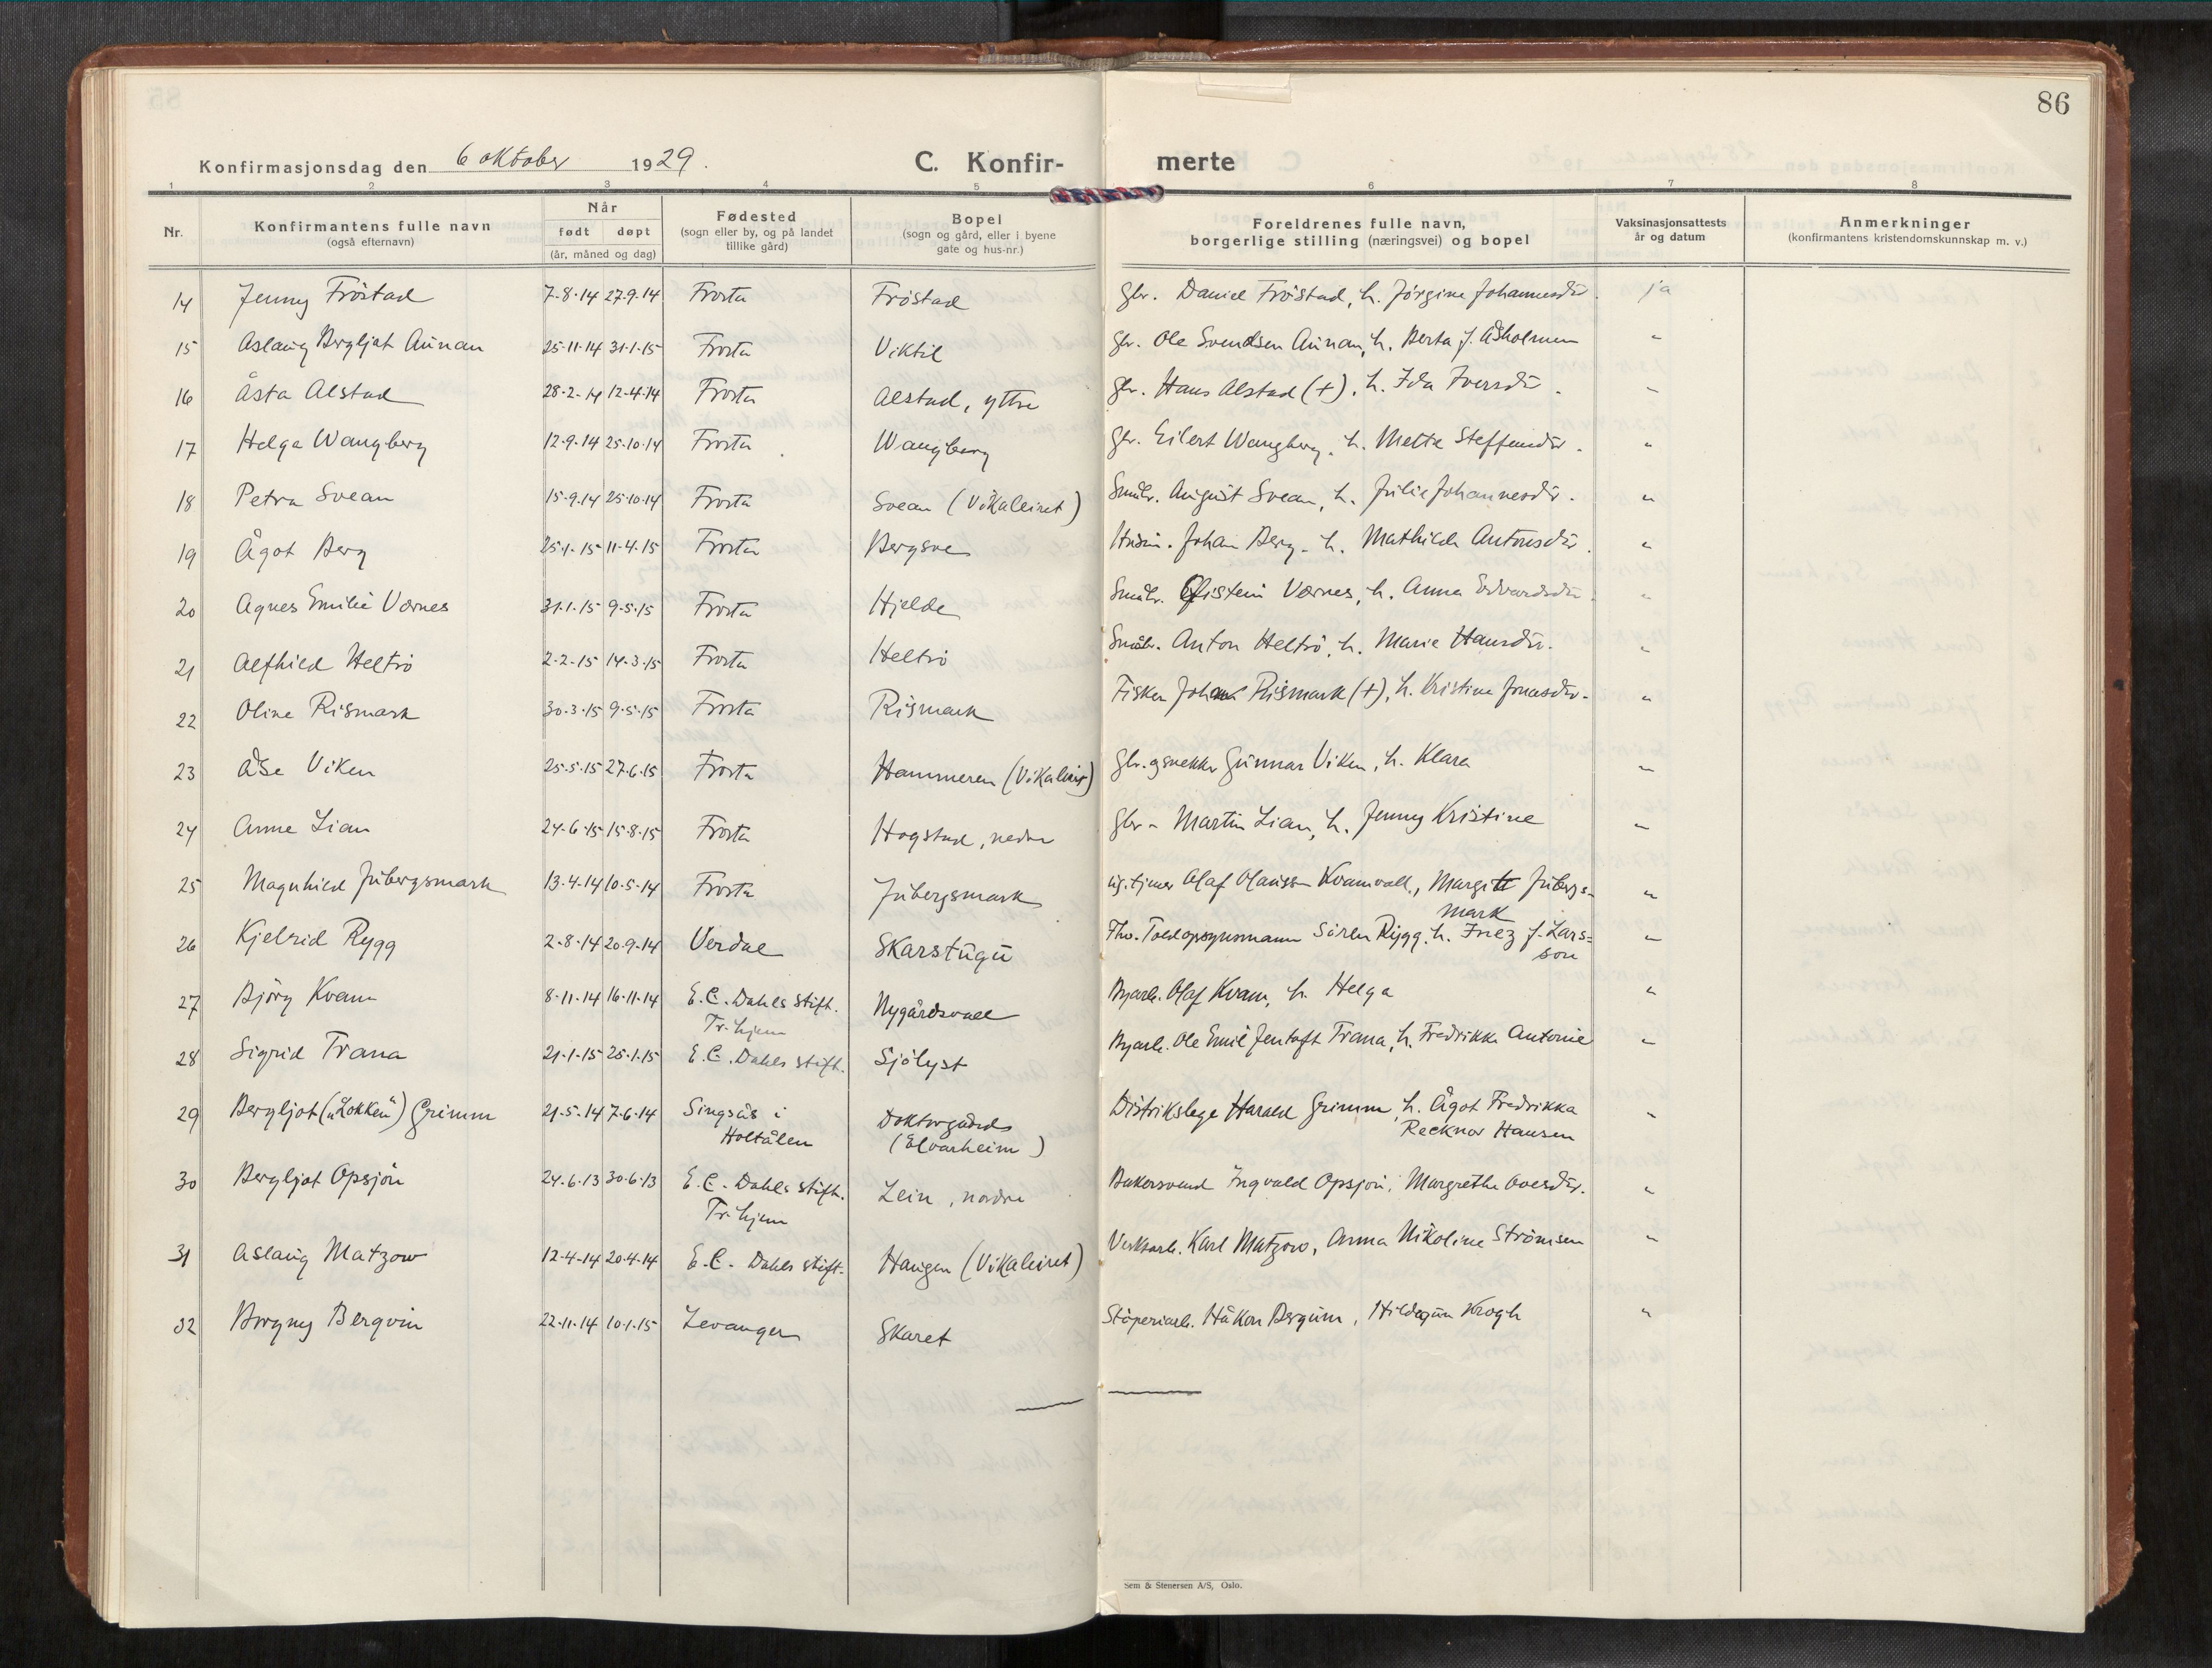 86
Konfirmasjonsdag den 6 oktober 1929.
C. Konfir- merte
1 2 3 4 5 6 7 8
Nr.
Konfirmantens fulle navn
(også efternavn)
Når
født døpt
(år, måned og dag)
Fødested
(sogn eller by, og på landet
tillike gård)
Bopel
(sogn og gård, eller i byene
gate og hus-nr.)
Foreldrenes fulle navn,
borgerlige stilling (næringsvei) og bopel
Vaksinasjonsattests
år og datum
Anmerkninger
(konfirmantens kristendomskunnskap m. v.)
14 Jenny Fröstad 7-8-14 27.9.14 Frosta Fröstad Gbr. Daniel Fröstad, h. Jörgine Johannesdtr. ja
15 Aslaug Bergljot Aunan 25-11-14 31-1-15 Frosta Viktil Gbr. Ole Svendsen Aunan, h. Berta f. Åsholmen "
16 Åsta Alstad 28-2-14 12-4-14 Frosta Alstad, yttre Gbr. Hans Alstad (+), h. Ida Iversdtr. "
17 Helga Wangberg 12-9-14 25-10-14 Frosta Wangberg Gbr. Eilert Wangberg, h. Mette Steffensdtr. "
18 Petra Svean 15-9-14 25-10-14 Frosta Svean (Vikaleiret) Småbr. August Svean, h. Julie Johannesdtr. "
19 Ågot Berg 25-1-15 11-4-15 Frosta Bergsve Husm. Johan Berg, h. Mathilde Antonsdtr. "
20 Agnes Emilie Værnes 31-1-15 9-5-15 Frosta Hjelde Småbr. Eistein Værnes, h. Anna Edvardsdtr. "
21 Alfhild Heltrö 2-2-15 14-3-15 Frosta Heltrö Småbr. Anton Heltrö, h. Marie Hansdtr. "
22 Oline Rismark 30-3-15 9-5-15 Frosta Rismark Fisker Johan Rismark (+), h. Kristine Jonasdtr. "
23 Åse Viken 25-5-15 27-6-15 Frosta Hammeren (Vikaleiret) Gbr. og snekker Gunnar Viken, h. Klara "
24 Anne Lian 24-6-15 15-8-15 Frosta Hogstad, nedre Gbr. Martin Lian, h. Jenny Kristine "
25 Magnhild Jubergsmark 13-4-14 10-5-14 Frosta Jubergsmark Olaf Olaussen Kvamvoll, Margitt Jubergs-
mark "
26 Kjelrid Rygg 2-8-14 20-9-14 Verdal Skarstugu Fhv. Toldopsynsmann Sören Rygg, h. Inez f. Lars=
son "
27 Björg Kvam 8-11-14 16-11-14 E. C. Dahls stift.
Tr.hjem Nygårdsvoll Byarb. Olaf Kvam, h. Helga "
28 Sigrid Trana 21-1-15 25-1-15 E. C. Dahls stift. Sjölyst Byarb. Ole Emil Jentoft Trana, h. Fredrikke Antonie "
29 Bergljot („Lokken") Grimm 21-5-14 7-6-14 Singsås i
Holtålen Doktorgården
(Elvarheim) Distrikslege Harald Grimm, h. Ågot Fredrikka
Recknor Hansen "
30 Bergljot Opsjön 24-6-13 30-6-13 E. C. Dahls stift.
Tr.hjem Lein, nordre Bakersvend Ingvald Opsjön, Margrethe Ovesdtr. "
31 Aslaug Matzow 12-4-14 20-4-14 E. C. Dahls stift. Haugen (Vikaleiret) Verksarb. Karl Matzow, Anna Nikoline Strömsen "
32 Borgny Bergvin 22-11-14 10-1-15 Levanger Skaret Stöperiarb. Håkon Bergum, Hildegun Krogh "
Sem & Stenersen A/S, Oslo.